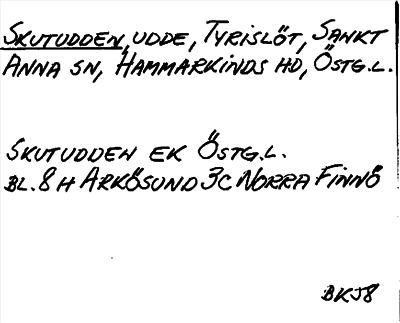 SKUTUDDEN, UDDE, TYRISLÖT, SANKT
ANNA SN, HAMMARKINDS HD, ÖSTG.L.
SKUTUDDEN EK ÖSTG.L.
BL. 8 H ARKÖSUND 3C NORRA FINNÖ
BKJ8